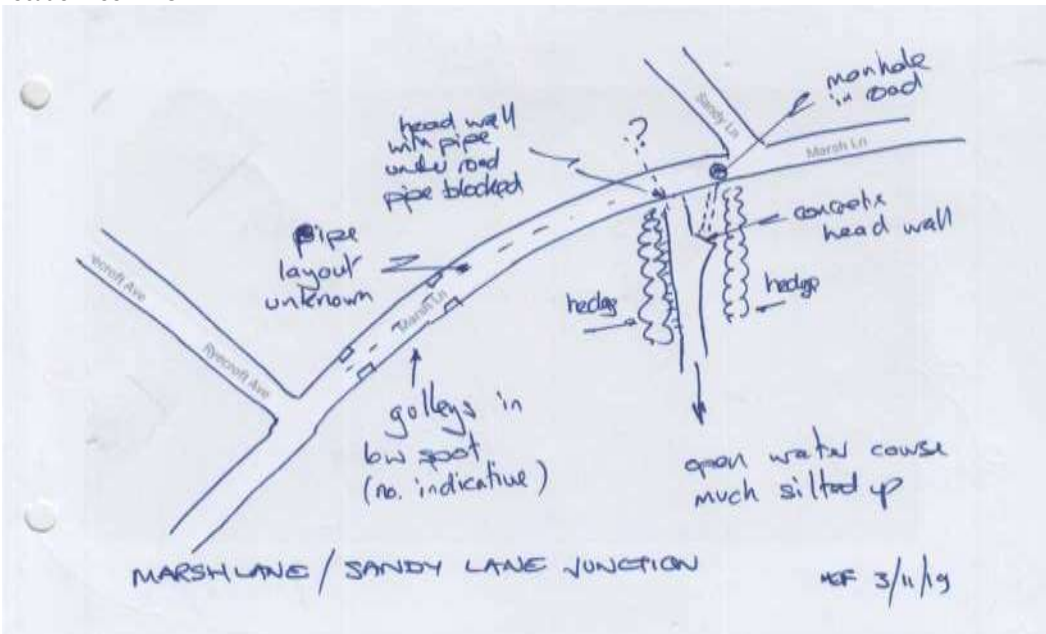 manhole
in road
Sandy Ln
Marsh Ln
head wall
with pipe
under road
pipe blocked
?
concrete
head wall
Pipe
layout
unknown
hedge
hedge
Marsh Ln
ecroft Ave
Ryecroft Ave
golleys in
low spot
(no. indicative)
open water course
much silted up
MARSH LANE / SANDY LANE JUNCTION
3/11/19